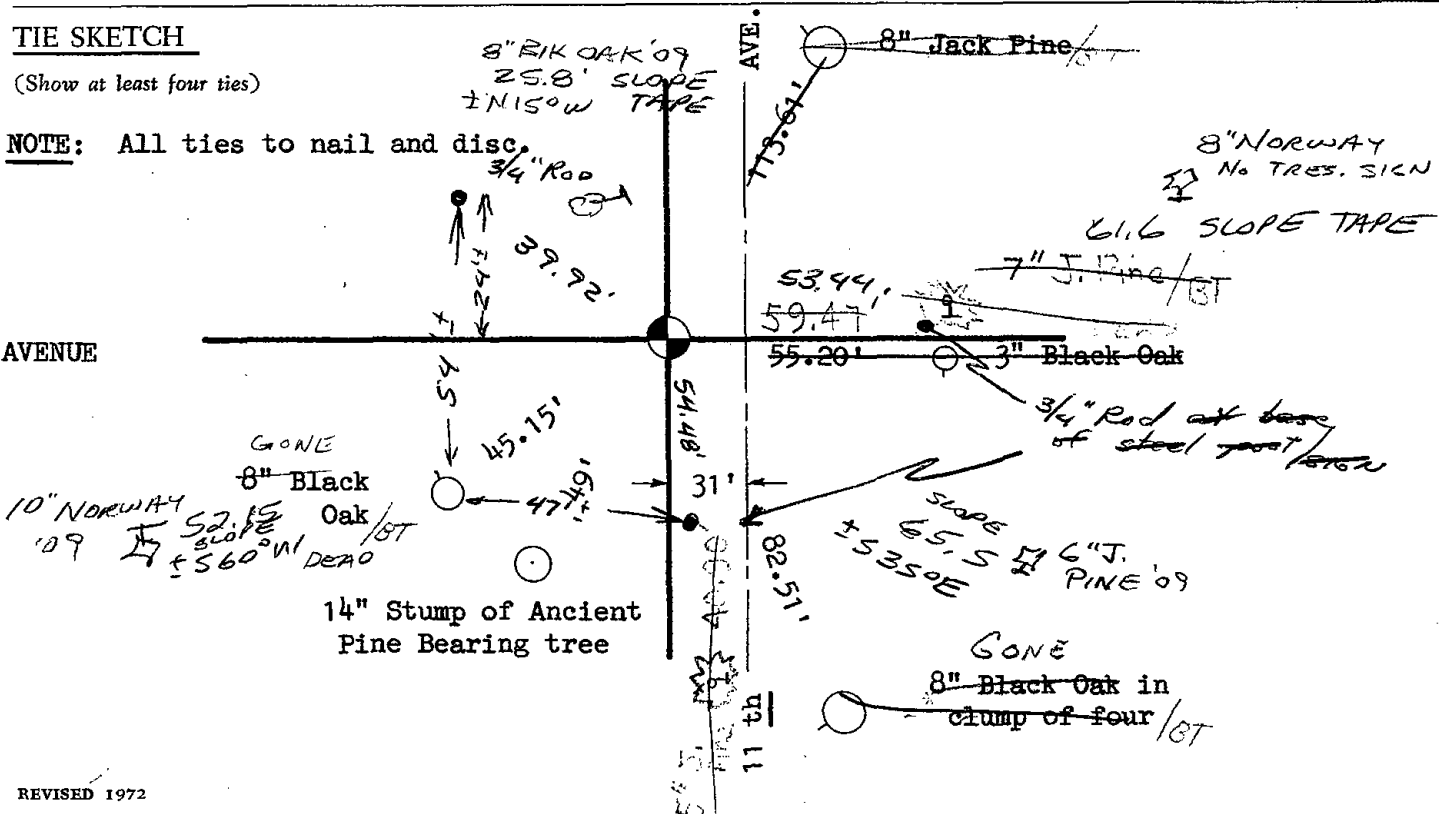 TIE SKETCH
(Show at least four ties)
NOTE: All ties to nail and disc.
8" BlK OAK '09
25.8' SLOPE
± N15°W TAPE
AVE.
8" Jack Pine /BT
113.61'
8" NORWAY
No TRES. SIGN
61.6 SLOPE TAPE
3/4" ROD
24'±
39.92'
7" J. Pine /BT
53.44'
59.47
AVENUE
55.20'
3" Black Oak
54 ±
3/4" Rod at base
of steel post/SIGN
54.48'
45.15'
GONE
8" Black
Oak /BT
DEAD
10" NORWAY
'09
52.15
SLOPE
± S60°W
47.49'
±
31'
SLOPE
65.5
± S35°E
6" J.
PINE '09
82.51'
40.00
14" Stump of Ancient
Pine Bearing tree
GONE
8" Black Oak in
clump of four /BT
11 th
REVISED 1972